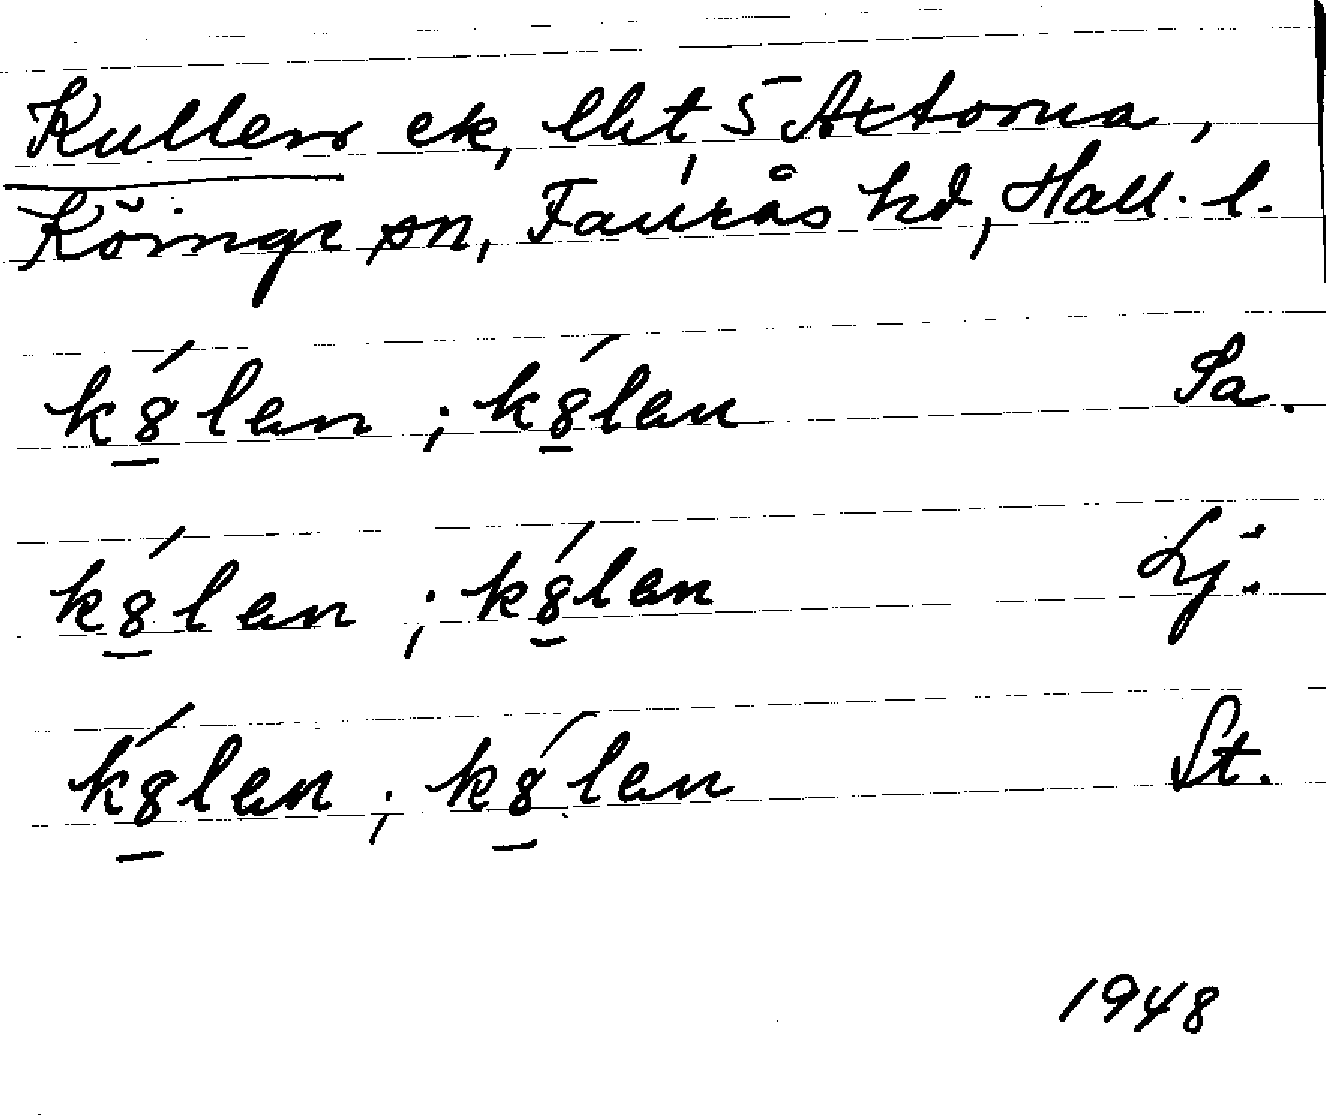 Kullen ek, lht 5 Axtorna,
Köinge sn, Faurås hd, Hall. l.
kȣ̲́len ; kȣ̲́len Sa.
kȣ̲́len ; kȣ̲́len Lj.
kȣ̲́len ; kȣ̲́len St.
1948